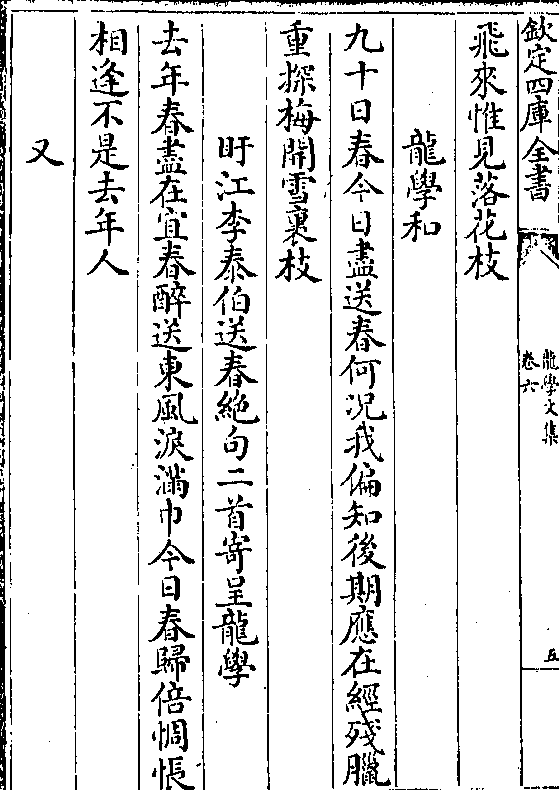 欽定四庫全書
龍學文集
卷六
五
飛來惟見落花枝
龍學和
九十日春今日盡送春何况我偏知後期應在經殘臘
重探梅開雪裏枝
盱江李泰伯送春絶句二首寄呈龍學
去年春盡在宜春醉送東風淚滿巾今日春歸倍惆悵
相逢不是去年人
又